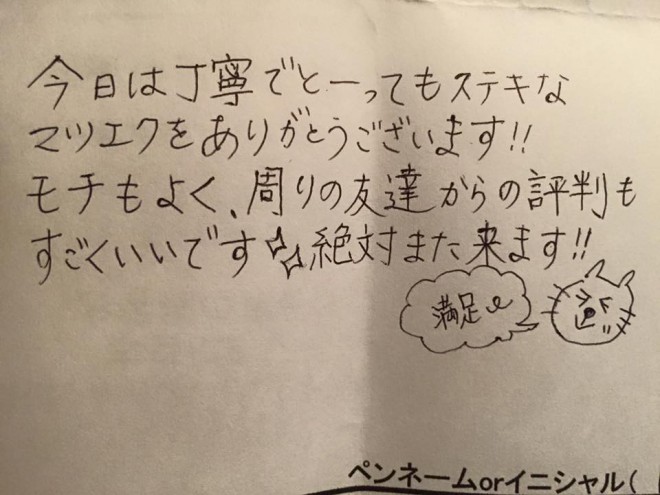 今日は丁寧でとーってもステキな
マツエクをありがとうございます!!
モチもよく、周りの友達からの評判も
すごくいいです✧✧絶対また来ます!!
満足
ペンネームorイニシャル(